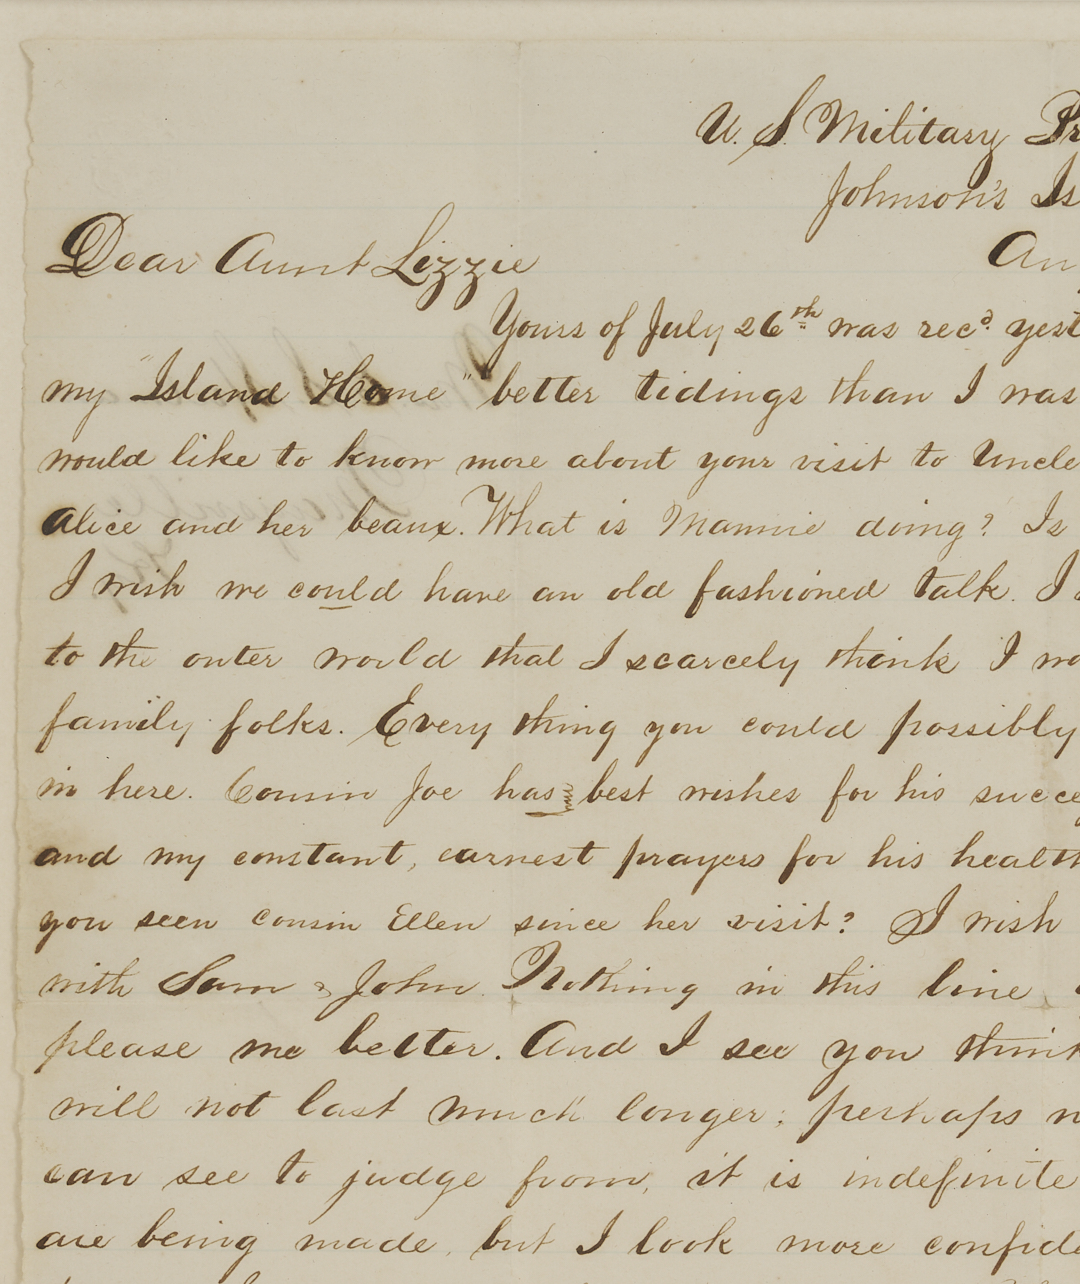 U. S. Military Pr
Johnson's Is
Dear Aunt Lizzie
Au
Yours of July 26th was recd. yest
my "Island Home" better tidings than I was
would like to know more about your visit to Uncle
Alice and her beaux. What is Mannie doing? Is
I wish we could have an old fashioned talk. I
to the outer world that I scarcely think I wo
family folks. Every thing you could possibly
in here. Cousin Joe has my best wishes for his succe
and my constant, earnest prayers for his health
you seen cousin Ellen since her visit? I wish
with Sam & John. Nothing in this line
please me better. And I see you think
will not last much longer; perhaps n
can see to judge from, it is indefinite
are being made, but I look more confide